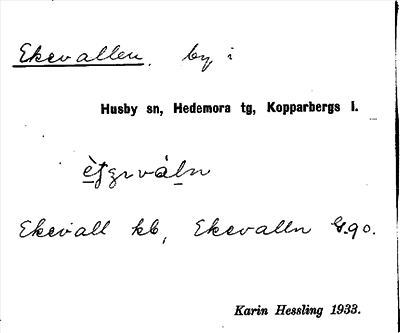 Ekevallen, by i
Husby sn, Hedemora tg, Kopparbergs l.
Ekevall kb, Ekevalln
Karin Hessling 1933.